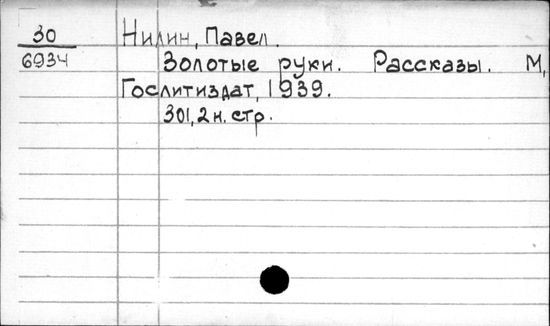 30 Нилин, Павел.
6934 Золотые руки. Рассказы. М,
Гослитиздат, 1939.
301, 2 н. стр.